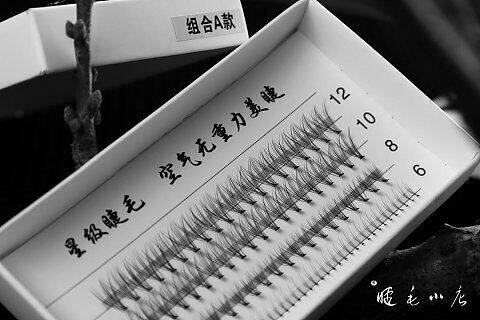 组合A款
星级睫毛 空气无重力美睫
12
10
8
6
睫毛小店